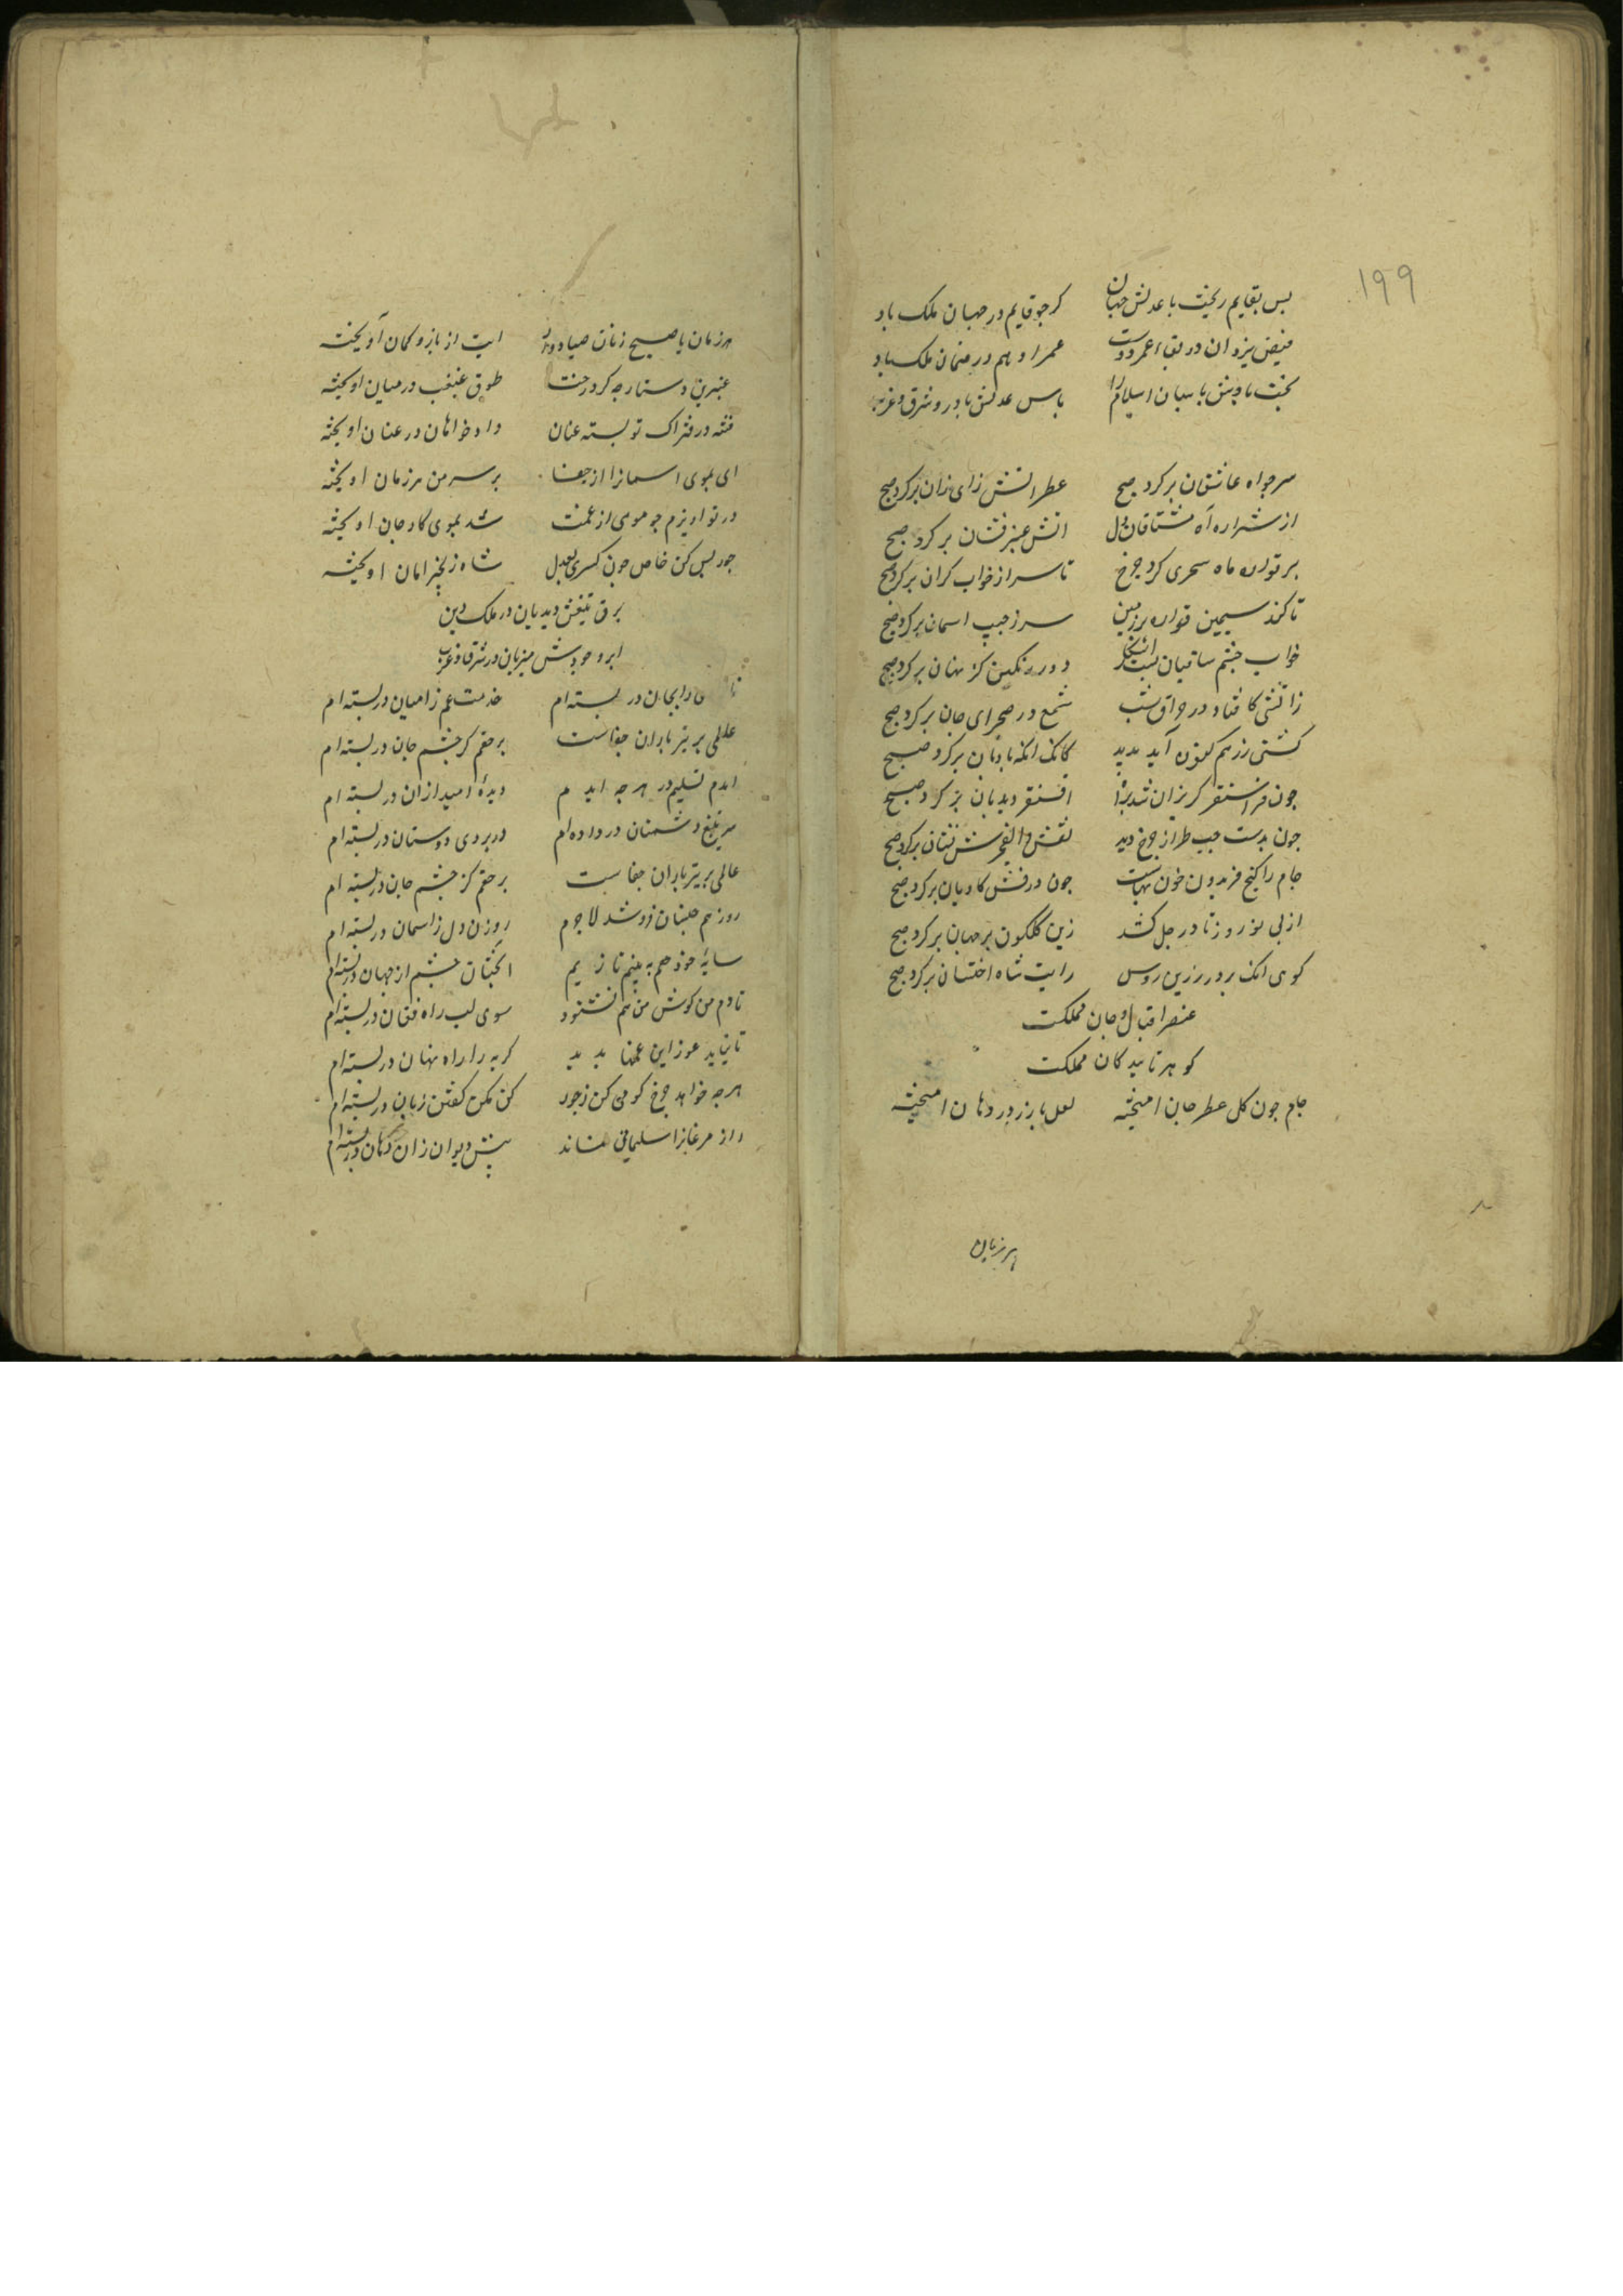 ۱۹۹
بس بقایم ریخت با عدلش جهان کر جو قایم در جهان ملک باد
فیض یزدان در بقاء عمر دوست عمر او هم در ضمان ملک باد
بخت بادش پاسبان اسلام را پاس عدلش باد در شرق و غرب
سر جو اه عاشقان بر کرد صبح عطر اتش زای زان بر کرد صبح
از شراره آه مشتاقان دل اتش عنبر فشان بر کرد صبح
بر تواره ماه سحری کرد جرخ تا سر از خواب کران بر کرد صبح
تا کند سیمین قواره بر زمین سر ز جیب اسمان بر کرد صبح
خواب جشم ساقیان بست اشکار دور رنکین کز نهان بر کرد صبح
زاتشی کافتاد در حراق شب شمع در صحرای جان بر کرد صبح
کشتی زر هم کنون آید بدید کانک انکه بادبان بر کرد صبح
جون قراسنقر کریزان شد اقسنقر دیدبان بر کرد صبح
جون بدست جب طراز جرخ دید نقش والفجرش نشان بر کرد صبح
جام را کنج فریدون خون بهاست جون درفش کاویان بر کرد صبح
از بی نوروز تا در جل کشد زین کلکون بر جهان بر کرد صبح
کوی انک بر در زرین روس رایت شاه اختسان بر کرد صبح
عنصر اقبال و جان مملکت
کوهر تایید کان مملکت
جام جون کل عطر جان امیخته لعل با زر در دهان امیخته
هر زمان
هر زمان یاصیح زنان صیاد ایت از بازو کمان آویخته
عنبرین دستارجه کرد رخت طوق غبغب در میان اویخته
فتنه در فتراک تو بسته عنان داد خواهان در عنان اویخته
ای بموی اسمانرا از جفا بر سر من هر زمان اویخته
در تو اویزم جو موی از غمت شد بموی کار جان اویخته
جور بس کن خاص جون کسری بعدل شاه زنجیر امان اویخته
برق تیغش دیدبان در ملک دین
ابر وجودش میزبان در شرق و غرب
در بسته ام خدمت غم را میان در بسته ام
عالمی بر تیر باران جفاست بر حقم کر جشم جان در بسته ام
ام تسلیم در هر جه اید دیدهٔ امید از ان در بسته ام
سر بتیغ دشمنان در داده ام در بروی دوستان در بسته ام
عالمی بر تیر باران جفاست بر حقم کز جشم جان در بسته ام
روز هم جنسان فرو شد لاجرم روزن دل ز اسمان در بسته ام
سایهٔ خود هم نه بینم تا زیم انجنان جشم از جهان در بسته ام
تا دم من کوش من هم نشنود سوی لب راه فغان در بسته ام
تا نیاید غور این غمها بدید کریه را راه نهان در بسته ام
هرجه خواهد جرخ کو می کن ز جور کز مکن کفتن زبان در بسته ام
راز مرغانرا سلیمانی نماند بیش دیوان زان دهان در بسته ام